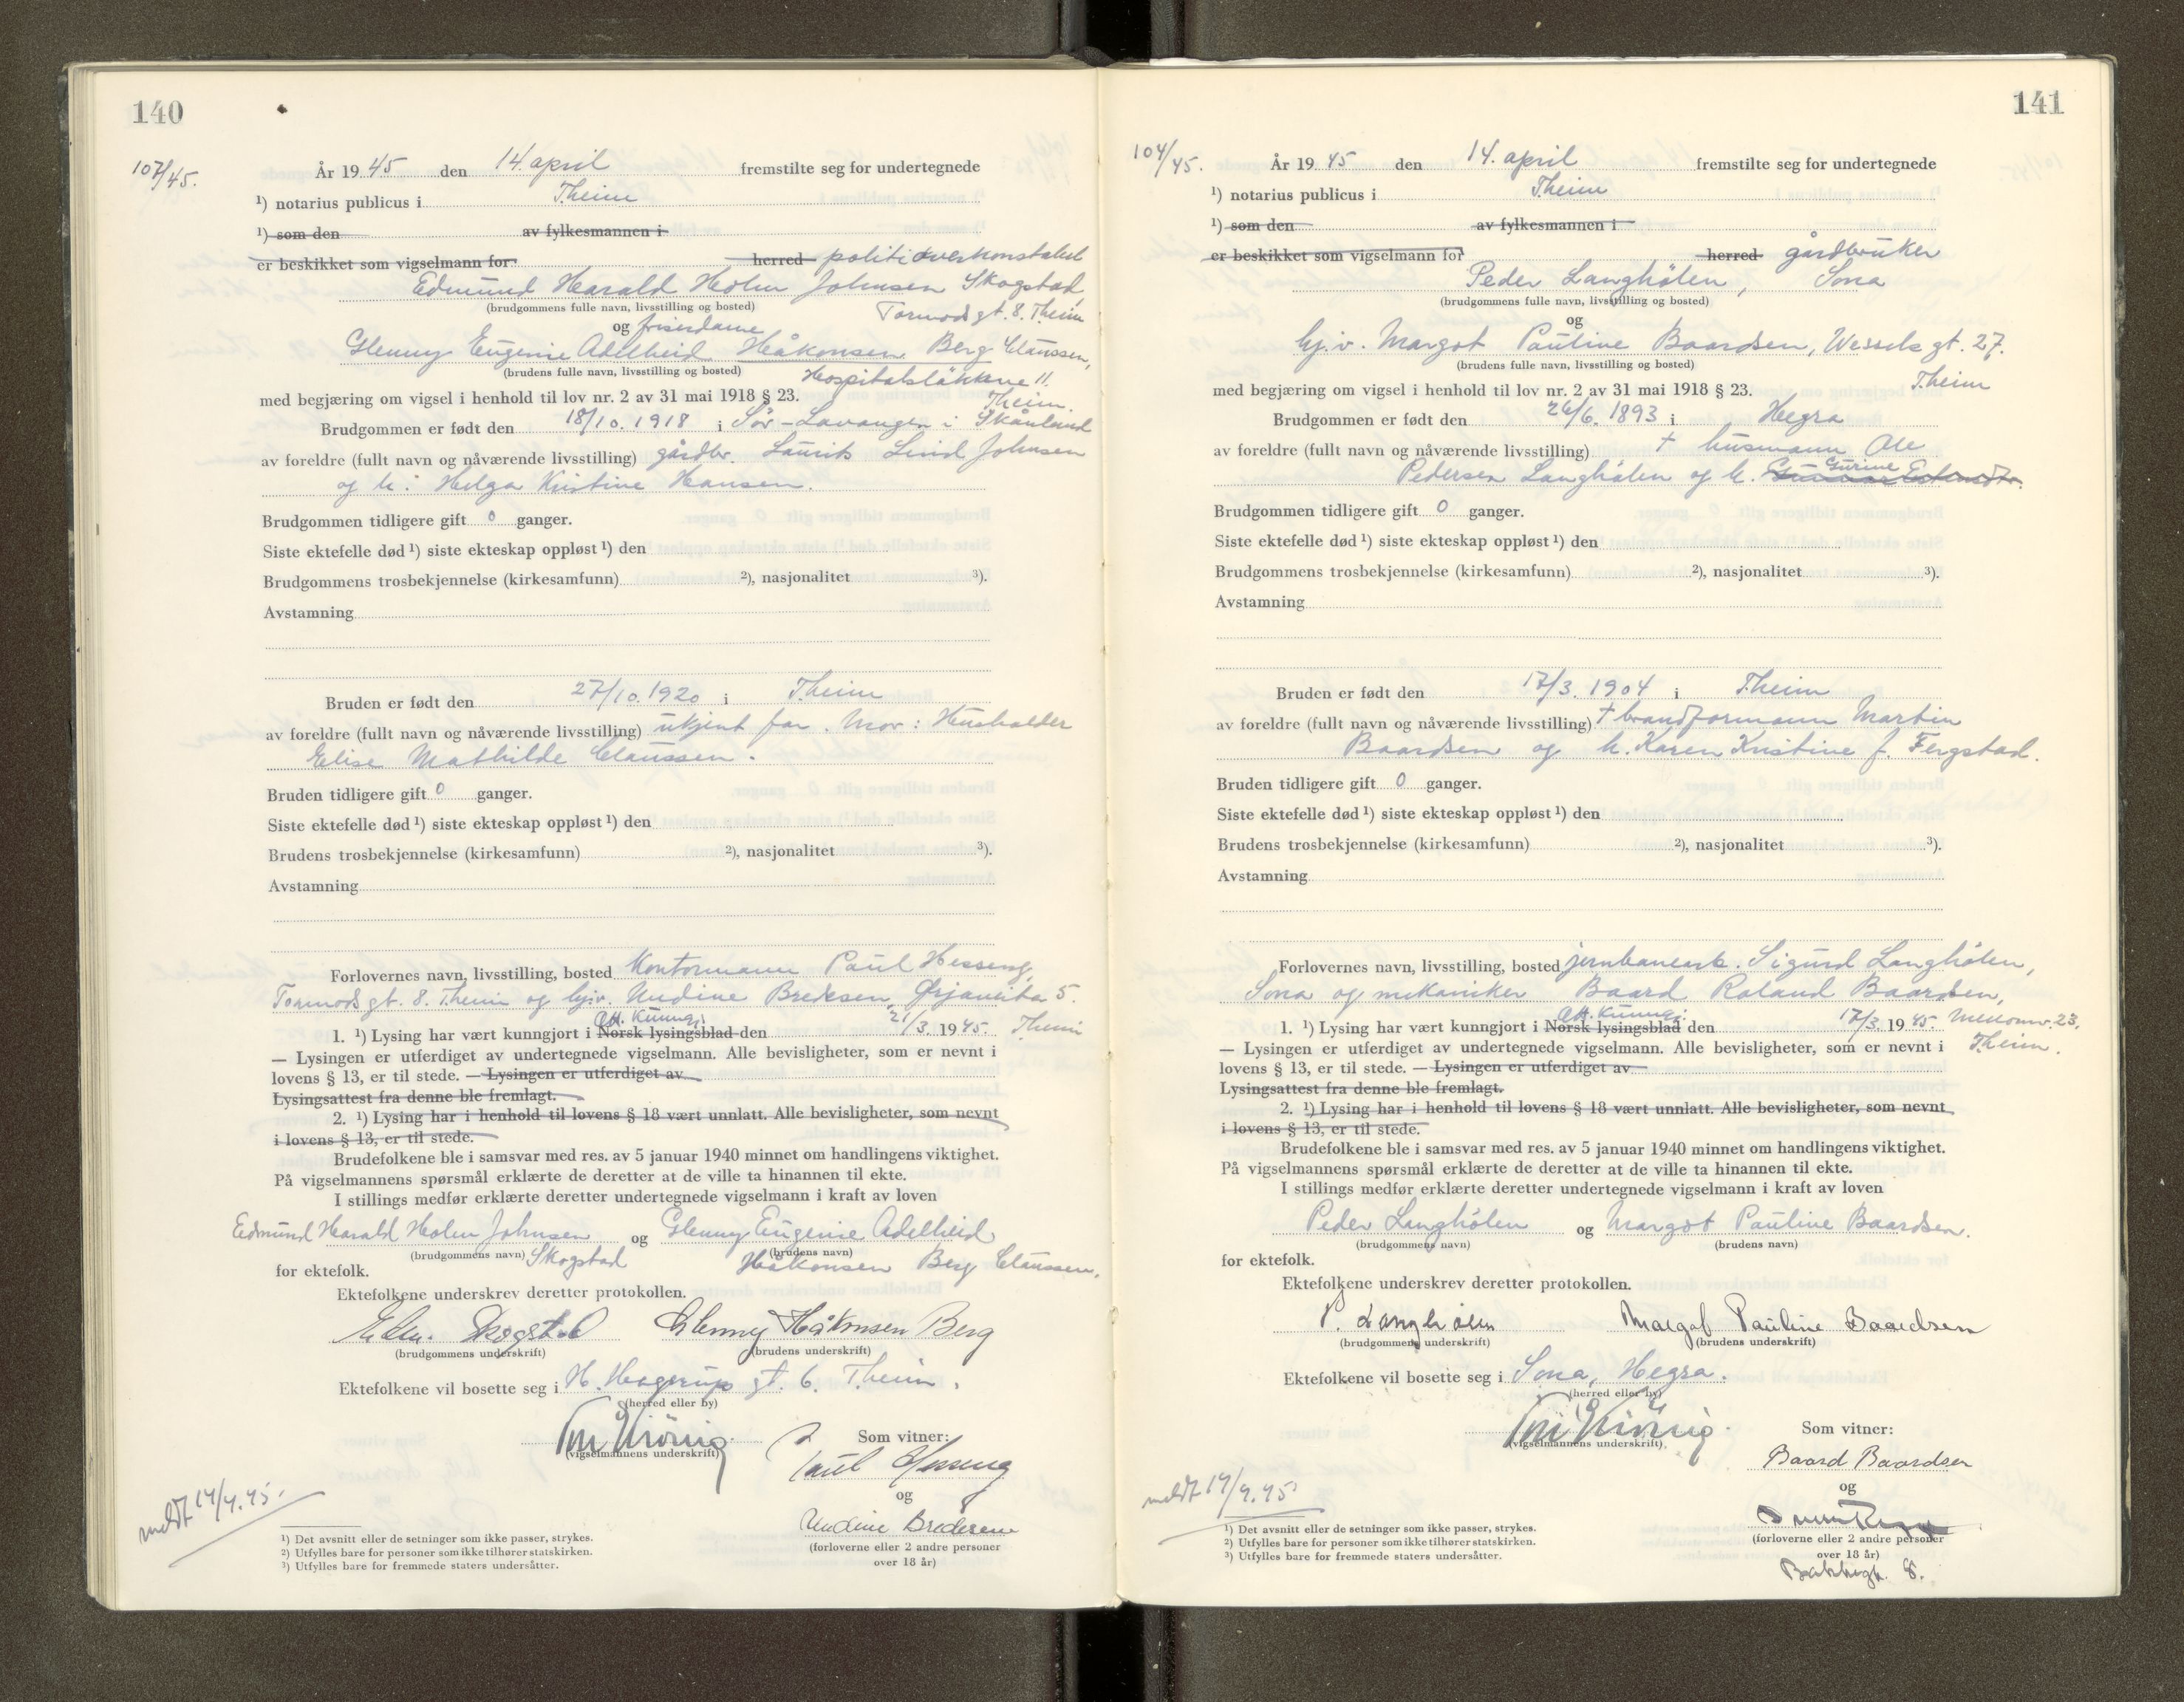 140
107/45.
År 1945 den 14. april fremstilte seg for undertegnede
¹) notarius publicus i T.heim
¹) som den av fylkesmannen i
er beskikket som vigselmann for herred politioverkonstabel
Edmund Harald Holm Johnsen Skogstad,
(brudgommens fulle navn, livsstilling og bosted) Tormods gt. 8. T.heim
og friserdame
Glenny Eugenie Adelheid Håkonsen Berg Claussen,
(brudens fulle navn, livsstilling og bosted) Hospitalsløkkene 11.
med begjæring om vigsel i henhold til lov nr. 2 av 31 mai 1918 § 23. T.heim.
Brudgommen er født den 18/10. 1918 i Sør-Lavangen i Skånland
av foreldre (fullt navn og nåværende livsstilling) gårdbr. Laurits Lind Johnsen
og h. Helga Kristine Hansen.
Brudgommen tidligere gift 0 ganger.
Siste ektefelle død ¹) siste ekteskap oppløst ¹) den
Brudgommens trosbekjennelse (kirkesamfunn) ²), nasjonalitet ³).
Avstamning
Bruden er født den 27/10. 1920 i T.heim
av foreldre (fullt navn og nåværende livsstilling) ukjent far. Mor: Husholder
Elise Mathilde Claussen.
Bruden tidligere gift 0 ganger.
Siste ektefelle død ¹) siste ekteskap oppløst ¹) den
Brudens trosbekjennelse (kirkesamfunn) ²), nasjonalitet ³).
Avstamning
Forlovernes navn, livsstilling, bosted Kontormann Paul Hesseng,
Tormods gt. 8. T.heim og hj.v. Undine Bredesen, Ørjaveita 5.
1. ¹) Lysing har vært kunngjort i Norsk lysingsblad den 21/3. 1945. T.heim
— Lysingen er utferdiget av undertegnede vigselmann. Alle bevisligheter, som er nevnt i
lovens § 13, er til stede. — Lysingen er utferdiget av
Lysingsattest fra denne ble fremlagt.
2. ¹) Lysing har i henhold til lovens § 18 vært unnlatt. Alle bevisligheter, som nevnt
i lovens § 13, er til stede.
Brudefolkene ble i samsvar med res. av 5 januar 1940 minnet om handlingens viktighet.
På vigselmannens spørsmål erklærte de deretter at de ville ta hinannen til ekte.
I stillings medfør erklærte deretter undertegnede vigselmann i kraft av loven
Edmund Harald Holm Johnsen og Glenny Eugenie Adelheid
(brudgommens navn) Skogstad (brudens navn) Håkonsen Berg Claussen,
for ektefolk.
Ektefolkene underskrev deretter protokollen.
Edm. Skogstad Glenny Håkonsen Berg
(brudgommens underskrift) (brudens underskrift)
Ektefolkene vil bosette seg i H. Hagerups gt. 6. T.heim.
(herred eller by)
Som vitner:
(vigselmannens underskrift)
Paul Hesseng
og
Undine Bredesen
(forloverne eller 2 andre personer
over 18 år)
meldt 14/4.45.
¹) Det avsnitt eller de setninger som ikke passer, strykes.
²) Utfylles bare for personer som ikke tilhører statskirken.
³) Utfylles bare for fremmede staters undersåtter.
141
104/45.
År 1945 den 14. april fremstilte seg for undertegnede
¹) notarius publicus i T.heim
¹) som den av fylkesmannen i
er beskikket som vigselmann for herred gårdbruker
Peder Langhölen, Sona
(brudgommens fulle navn, livsstilling og bosted)
og
hj.v. Margot Pauline Baardsen, Wessels gt. 27.
(brudens fulle navn, livsstilling og bosted)
med begjæring om vigsel i henhold til lov nr. 2 av 31 mai 1918 § 23. T.heim
Brudgommen er født den 26/6. 1893 i Hegra
av foreldre (fullt navn og nåværende livsstilling) † husmann Ole
Pedersen Langhölen og h. Gurine
Brudgommen tidligere gift 0 ganger.
Siste ektefelle død ¹) siste ekteskap oppløst ¹) den
Brudgommens trosbekjennelse (kirkesamfunn) ²), nasjonalitet ³).
Avstamning
Bruden er født den 17/3. 1904 i T.heim
av foreldre (fullt navn og nåværende livsstilling) † brandformann Martin
Baardsen og h. Karen Kristine f. Fergstad.
Bruden tidligere gift 0 ganger.
Siste ektefelle død ¹) siste ekteskap oppløst ¹) den
Brudens trosbekjennelse (kirkesamfunn) ²), nasjonalitet ³).
Avstamning
Forlovernes navn, livsstilling, bosted jernbanearb. Sigurd Langhölen,
Sona og mekaniker Baard Roland Baardsen,
1. ¹) Lysing har vært kunngjort i Norsk lysingsblad den 17/3. 1945. Mellomv. 23,
— Lysingen er utferdiget av undertegnede vigselmann. Alle bevisligheter, som er nevnt i T.heim.
lovens § 13, er til stede. — Lysingen er utferdiget av
Lysingsattest fra denne ble fremlagt.
2. ¹) Lysing har i henhold til lovens § 18 vært unnlatt. Alle bevisligheter, som nevnt
i lovens § 13, er til stede.
Brudefolkene ble i samsvar med res. av 5 januar 1940 minnet om handlingens viktighet.
På vigselmannens spørsmål erklærte de deretter at de ville ta hinannen til ekte.
I stillings medfør erklærte deretter undertegnede vigselmann i kraft av loven
Peder Langhölen og Margot Pauline Baardsen.
(brudgommens navn) (brudens navn)
for ektefolk.
Ektefolkene underskrev deretter protokollen.
P. Langhölen Margot Pauline Baardsen
(brudgommens underskrift) (brudens underskrift)
Ektefolkene vil bosette seg i Sona, Hegra.
(herred eller by)
Som vitner:
(vigselmannens underskrift)
Baard Baardsen
og
(forloverne eller 2 andre personer
over 18 år)
Bakkegt. 8.
meldt 14/4.45
¹) Det avsnitt eller de setninger som ikke passer, strykes.
²) Utfylles bare for personer som ikke tilhører statskirken.
³) Utfylles bare for fremmede staters undersåtter.